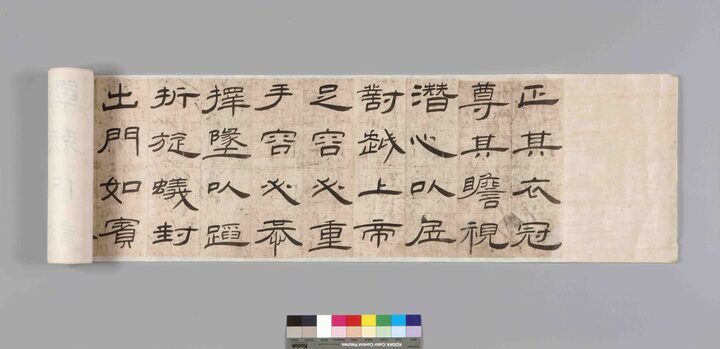 正其衣冠
尊其瞻視
潛心以居
對越上帝
足容必重
手容必恭
擇墬以蹈
折旋蟻封
出門如賓
Kodak
KODAK Color Control Patches